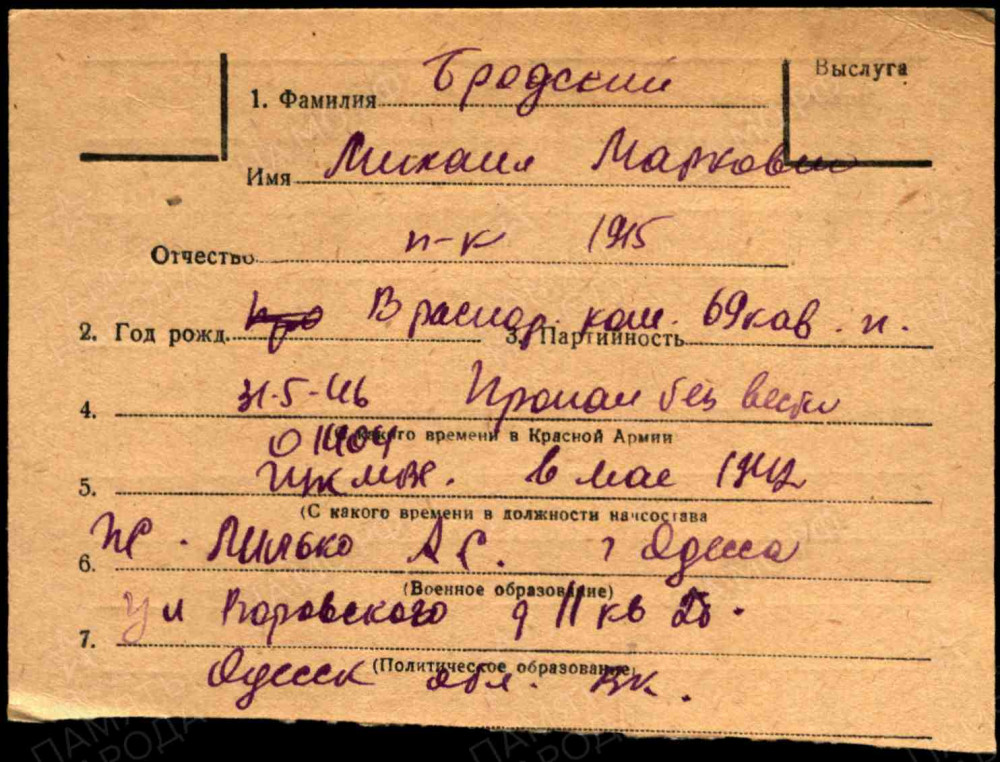 Выслуга
1. Фамилия Бродский
Имя Михаил Маркович
Отчество п-к 1915
2. Год рожд. В распор. ком. 69 кав. п.
3. Партийность
4. 31-5-46 Пропал без вести
С какого времени в Красной Армии
01404
5. ГУК МВС. в мае 1942
(С какого времени в должности начсостава
6. Милько А С. г Одесса
(Военное образование)
7. ул Воровского д 11 кв
(Политическое образование)
Одесск обл. ВК.